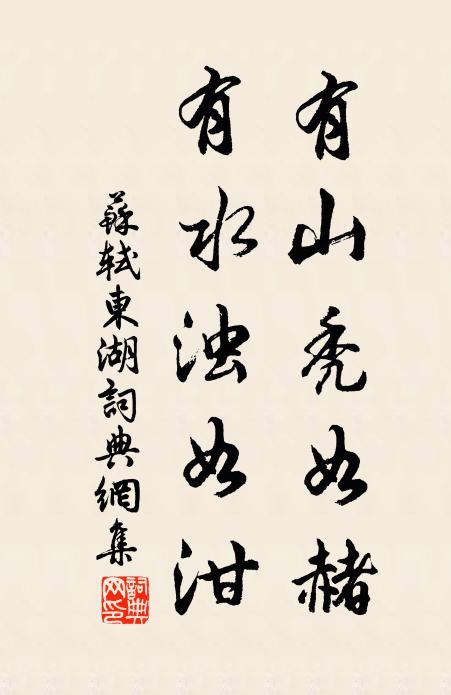 有山禿如赭
有水浊如泔
蘇軾東湖詞典網集
詞典網印